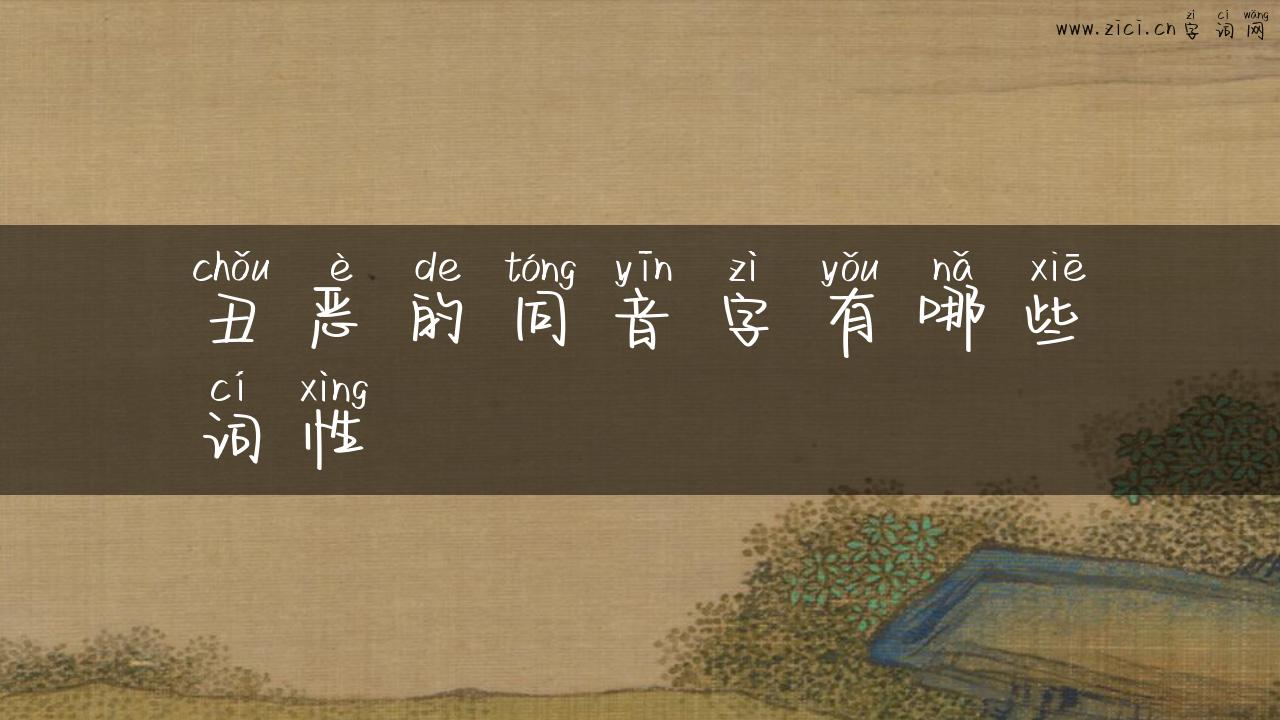 zì cí wǎng
www.zici.cn 字词网
chǒu è de tóng yīn zì yǒu nǎ xiē
丑恶的同音字有哪些
cí xìng
词性